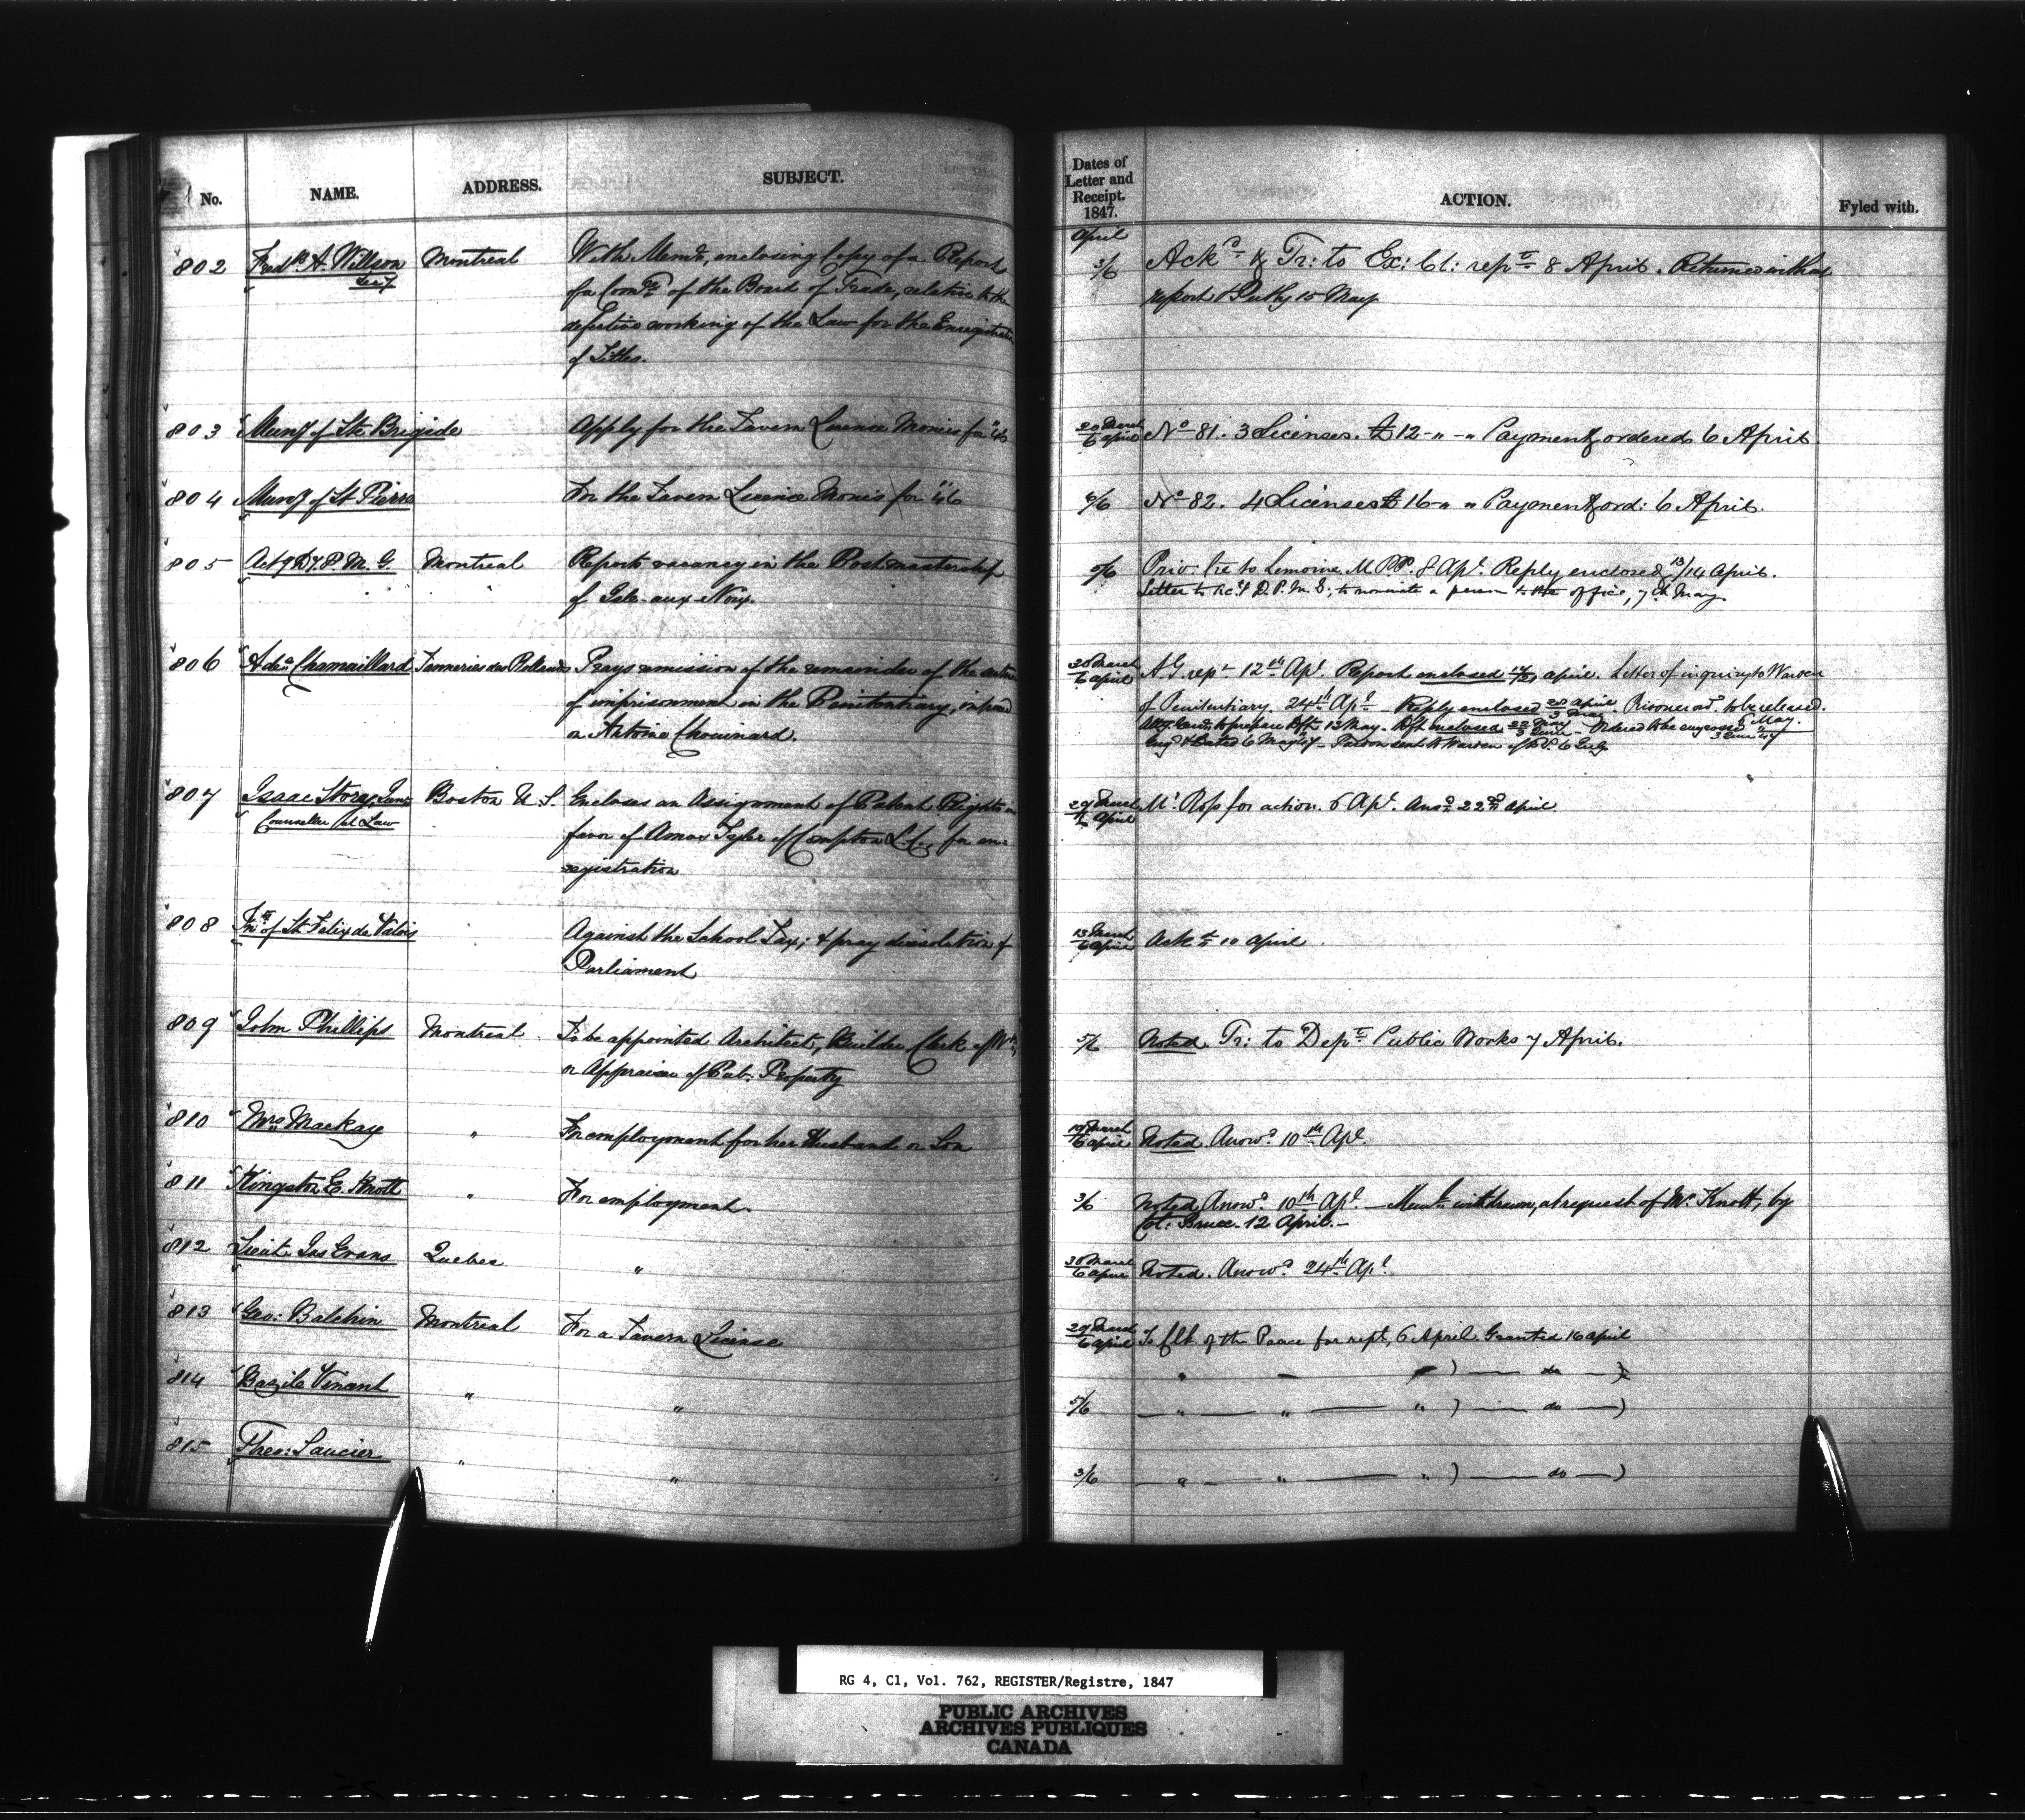 No. NAME. ADDRESS. SUBJECT.
802 Fredk A. Willson Montreal With Memo, enclosing Copy of a Report
Secy of a Comee of the Board of Trade, relative to the
defective working of the Law for the Enregistration
of Titles.
803 Muny of Ste Brigide Apply for the Tavern Licence Monies for "46
804 Muny of St Pierre For the Tavern Licence Monies for "46
805 Actg Dy P. M. G. Montreal Reports vacancy in the Postmastership
of Isle-aux-Noix.
806 Chamaillard Tanneries des Rollands Prays remission of the remainder of the
of imprisonment in the Penitentiary, imposed
on Antoine Chouinard.
807 Isaac Story, Junr Boston U. S. Encloses an Assignment of Patent Rights in
Counseller at Law favor of Amos Tyler of Compton L.C., for en-
registration
808 of St Felix de Valois Against the School Tax; & pray dissolution of
Parliament
809 John Phillips Montreal To be appointed Architect, Builder, Clerk of Wks,
or Appraiser of Pub. Property
810 Mrs Mackay " For employment for her Husband or Son
811 Kingston E. Knott " For employment.
812 Lieut. Jas Evans Quebec "
813 Geo: Balchin Montreal For a Tavern License
814 Bazile Vinant " "
815 Theo: Saucier " "
Dates of
Letter and
Receipt.
1847. ACTION. Fyled with.
April
3/6 Ackd & Tr: to Ex: Cl: rept 8 April. Returned with a
report 15 May
20 March
6 April No 81. 3 Licenses. £12 - " - " Payment ordered 6 April
6/6 No 82. 4 Licenses £16 " " Payment ord: 6 April.
5/6 Priv. lre to Lemoine M.P.P. 8 Apl. Reply enclosed 13/14 April.
Letter to D. P. M. G., to nominate a person to the office, 7th May
30 March
6 April A.G. rept 12th Apl. Report enclosed April. Letter of inquiry to Warden
of Penitentiary. 24th Apl Reply enclosed 28 April Prisoner ord to be released.
3 May 5 May.
to prepare dft. 13 May. Dft enclosed 22 May Ordered to be engrossed
3 June
Pardon sent to Warden 6 July
29 March
6 April Mr Ross for action. 6 Apl. Ansd 22nd April
13 March
6 April Ackd 10 April
5/6 Noted. Tr: to Dept Public Works 7 April.
19 March
6 April Noted. Answd 10th Apl
3/6 Noted, Answd 10th Apl — withdrawn, at request of Mr Knott, by
Col: Bruce. 12 April. —
30 March
6 April Noted. Answd 24th Apl
29 March
6 April To Clk. of the Peace for rept, 6 April. Granted 16 April
" — " ) — do — )
5/6 — " — " — " ) — do — )
3/6 — " — " — " ) — do — )
RG 4, C1, Vol. 762, REGISTER/Registre, 1847
PUBLIC ARCHIVES
ARCHIVES PUBLIQUES
CANADA